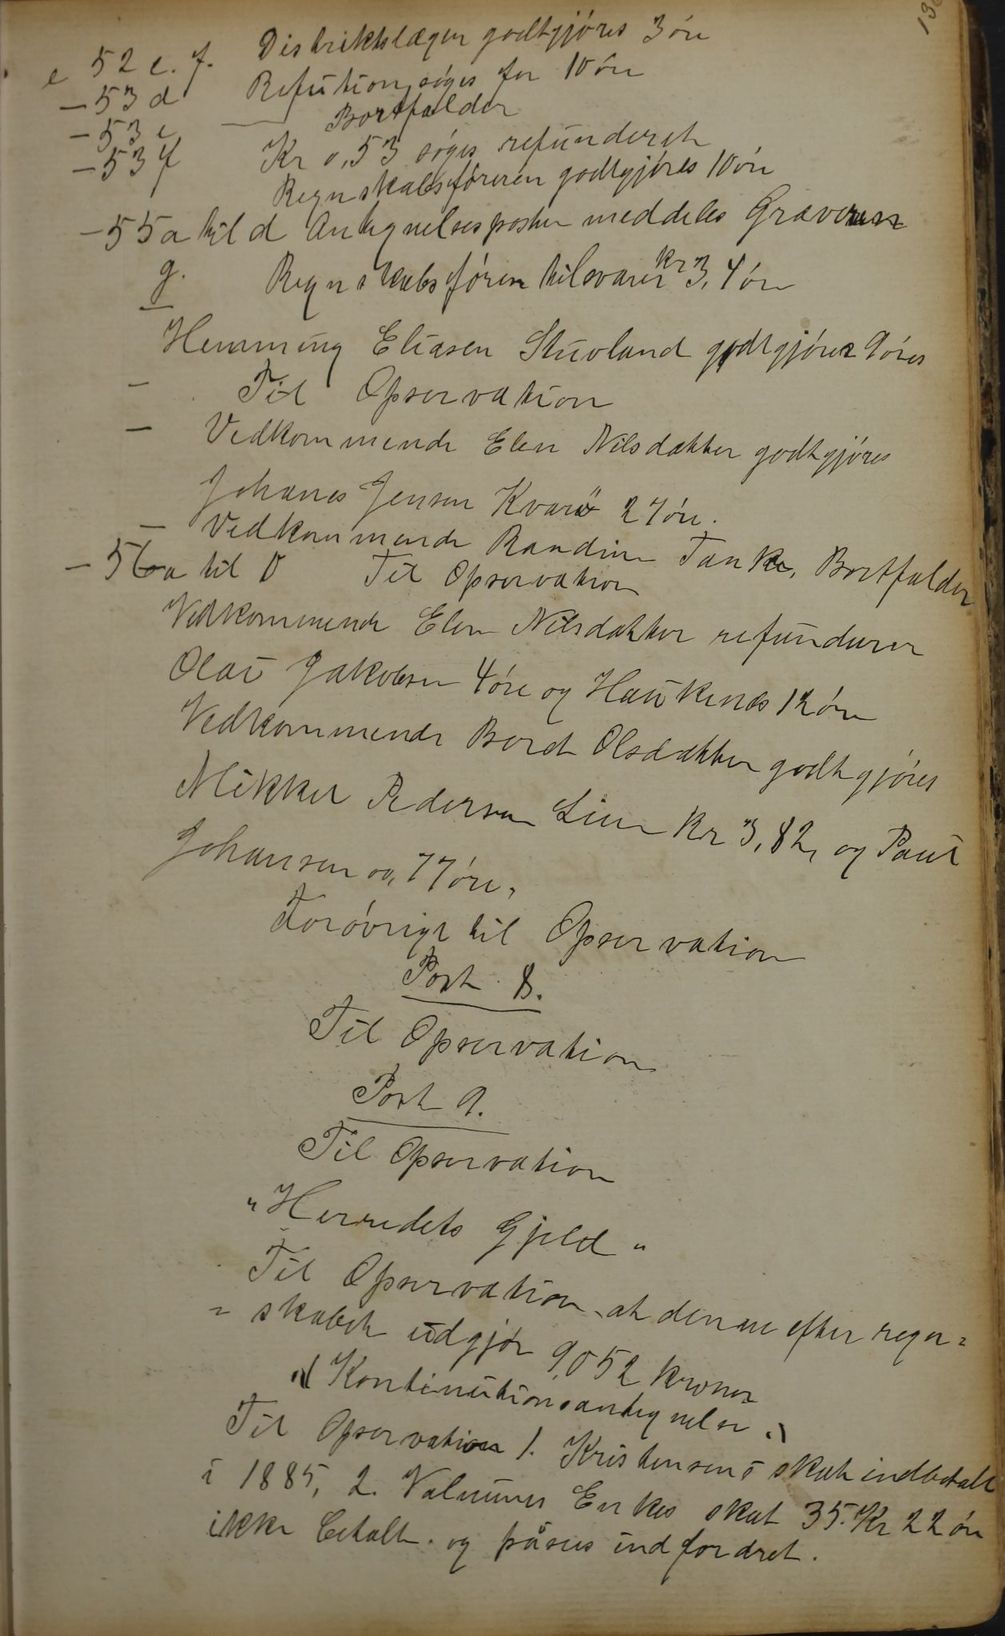 e 52 e. f. Distriktslægen godtgjöres 3 öre
- 53 d Refution söges for 10 öre
- 53 e Bortfalder
- 53 f Kr 0,53 söges refunderet
Regnskabsföreren godtgjöres 10 öre
- 55 a til d Antegnelsesposten meddeles Graveren
g. Regnskabsfören tilsvarer kr 3,4 öre
Hemming Eliasen Stuvland godtgjöres 9 öres
- Til Opservation
- Vedkommende Elen Nilsdatter godtgjöres
Johanes Jensen 27 öre.
- Vedkommende Randine Tanke, Bortfalder
- 56 a til Til Opservation
Vedkommende Elen Nilsdatter refunderer
Olai Jakobsen 4 öre og Haukenes 12 öre
Vedkommende Beret Olsdatter godtgjöres
Mikkel Pedersen Lien Kr 3,82, og Paul
Johansen 0,77 öre,
Forövrigt til Opservation
Post 8.
Til Opservation
Post 9.
Til Opservation
"Herredets Gjeld"
Til Opservation, at denne efter regn=
= skabet udgjör 9052 kroner
"Kontinutionsantegnelser"
Til Opservation 1. Kristensens skat indbetalt
i 1885, 2. Enkes skat 35. Kr 22 öre
ikke betalt. og påsees indfordret.